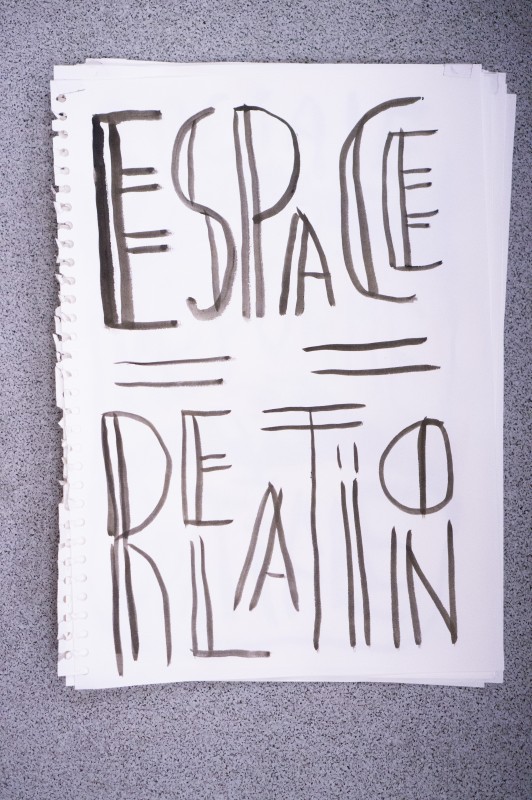 ESPACE
= =
RELATION